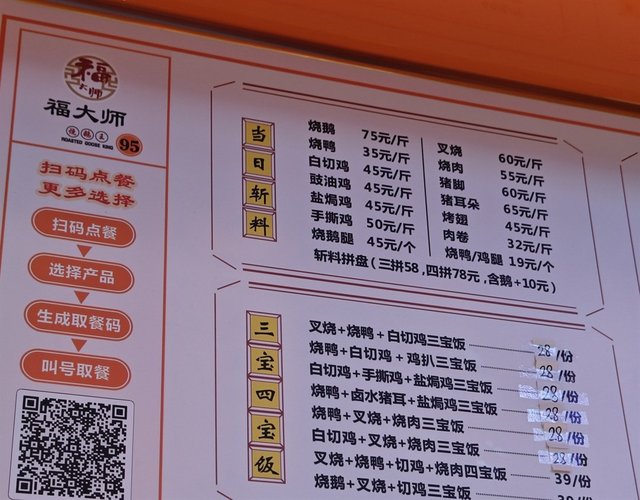 福
大师
福大师
烧鹅王
ROASTED GOOSE KING
95
扫码点餐
更多选择
扫码点餐
选择产品
生成取餐码
叫号取餐
当日斩料
烧鹅 75元/斤
烧鸭 35元/斤
白切鸡 45元/斤
豉油鸡 45元/斤
盐焗鸡 45元/斤
手撕鸡 50元/斤
烧鹅腿 45元/个
叉烧 60元/斤
烧肉 55元/斤
猪脚 60元/斤
猪耳朵 65元/斤
烤翅 45元/斤
肉卷 32元/斤
烧鸭/鸡腿 19元/个
斩料拼盘（三拼58,四拼78元,含鹅+10元）
三宝四宝饭
叉烧+烧鸭+白切鸡三宝饭 28/份
烧鸭+白切鸡+鸡扒三宝饭 28/份
白切鸡+手撕鸡+盐焗鸡三宝饭 28/份
烧鸭+卤水猪耳+盐焗鸡三宝饭 28/份
烧鸭+叉烧+烧肉三宝饭 28/份
白切鸡+叉烧+烧肉三宝饭 28/份
叉烧+烧鸭+切鸡+烧肉四宝饭 39/份
烧鹅+叉烧+切鸡三宝饭